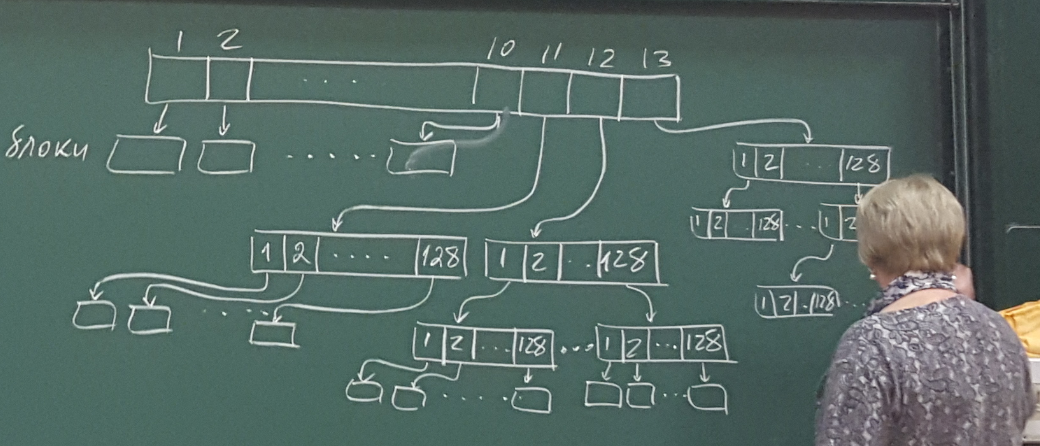 1 2 10 11 12 13
. . . .
блоки . . . . . .
1 2 . . . 128
1 2 . . 128 . . . 1 2
1 2 . . . . 128 1 2 . . 128
1 2 . 128 . . .
. . . . .
1 2 ... 128 ... 1 2 ... 128
. . . . . ...